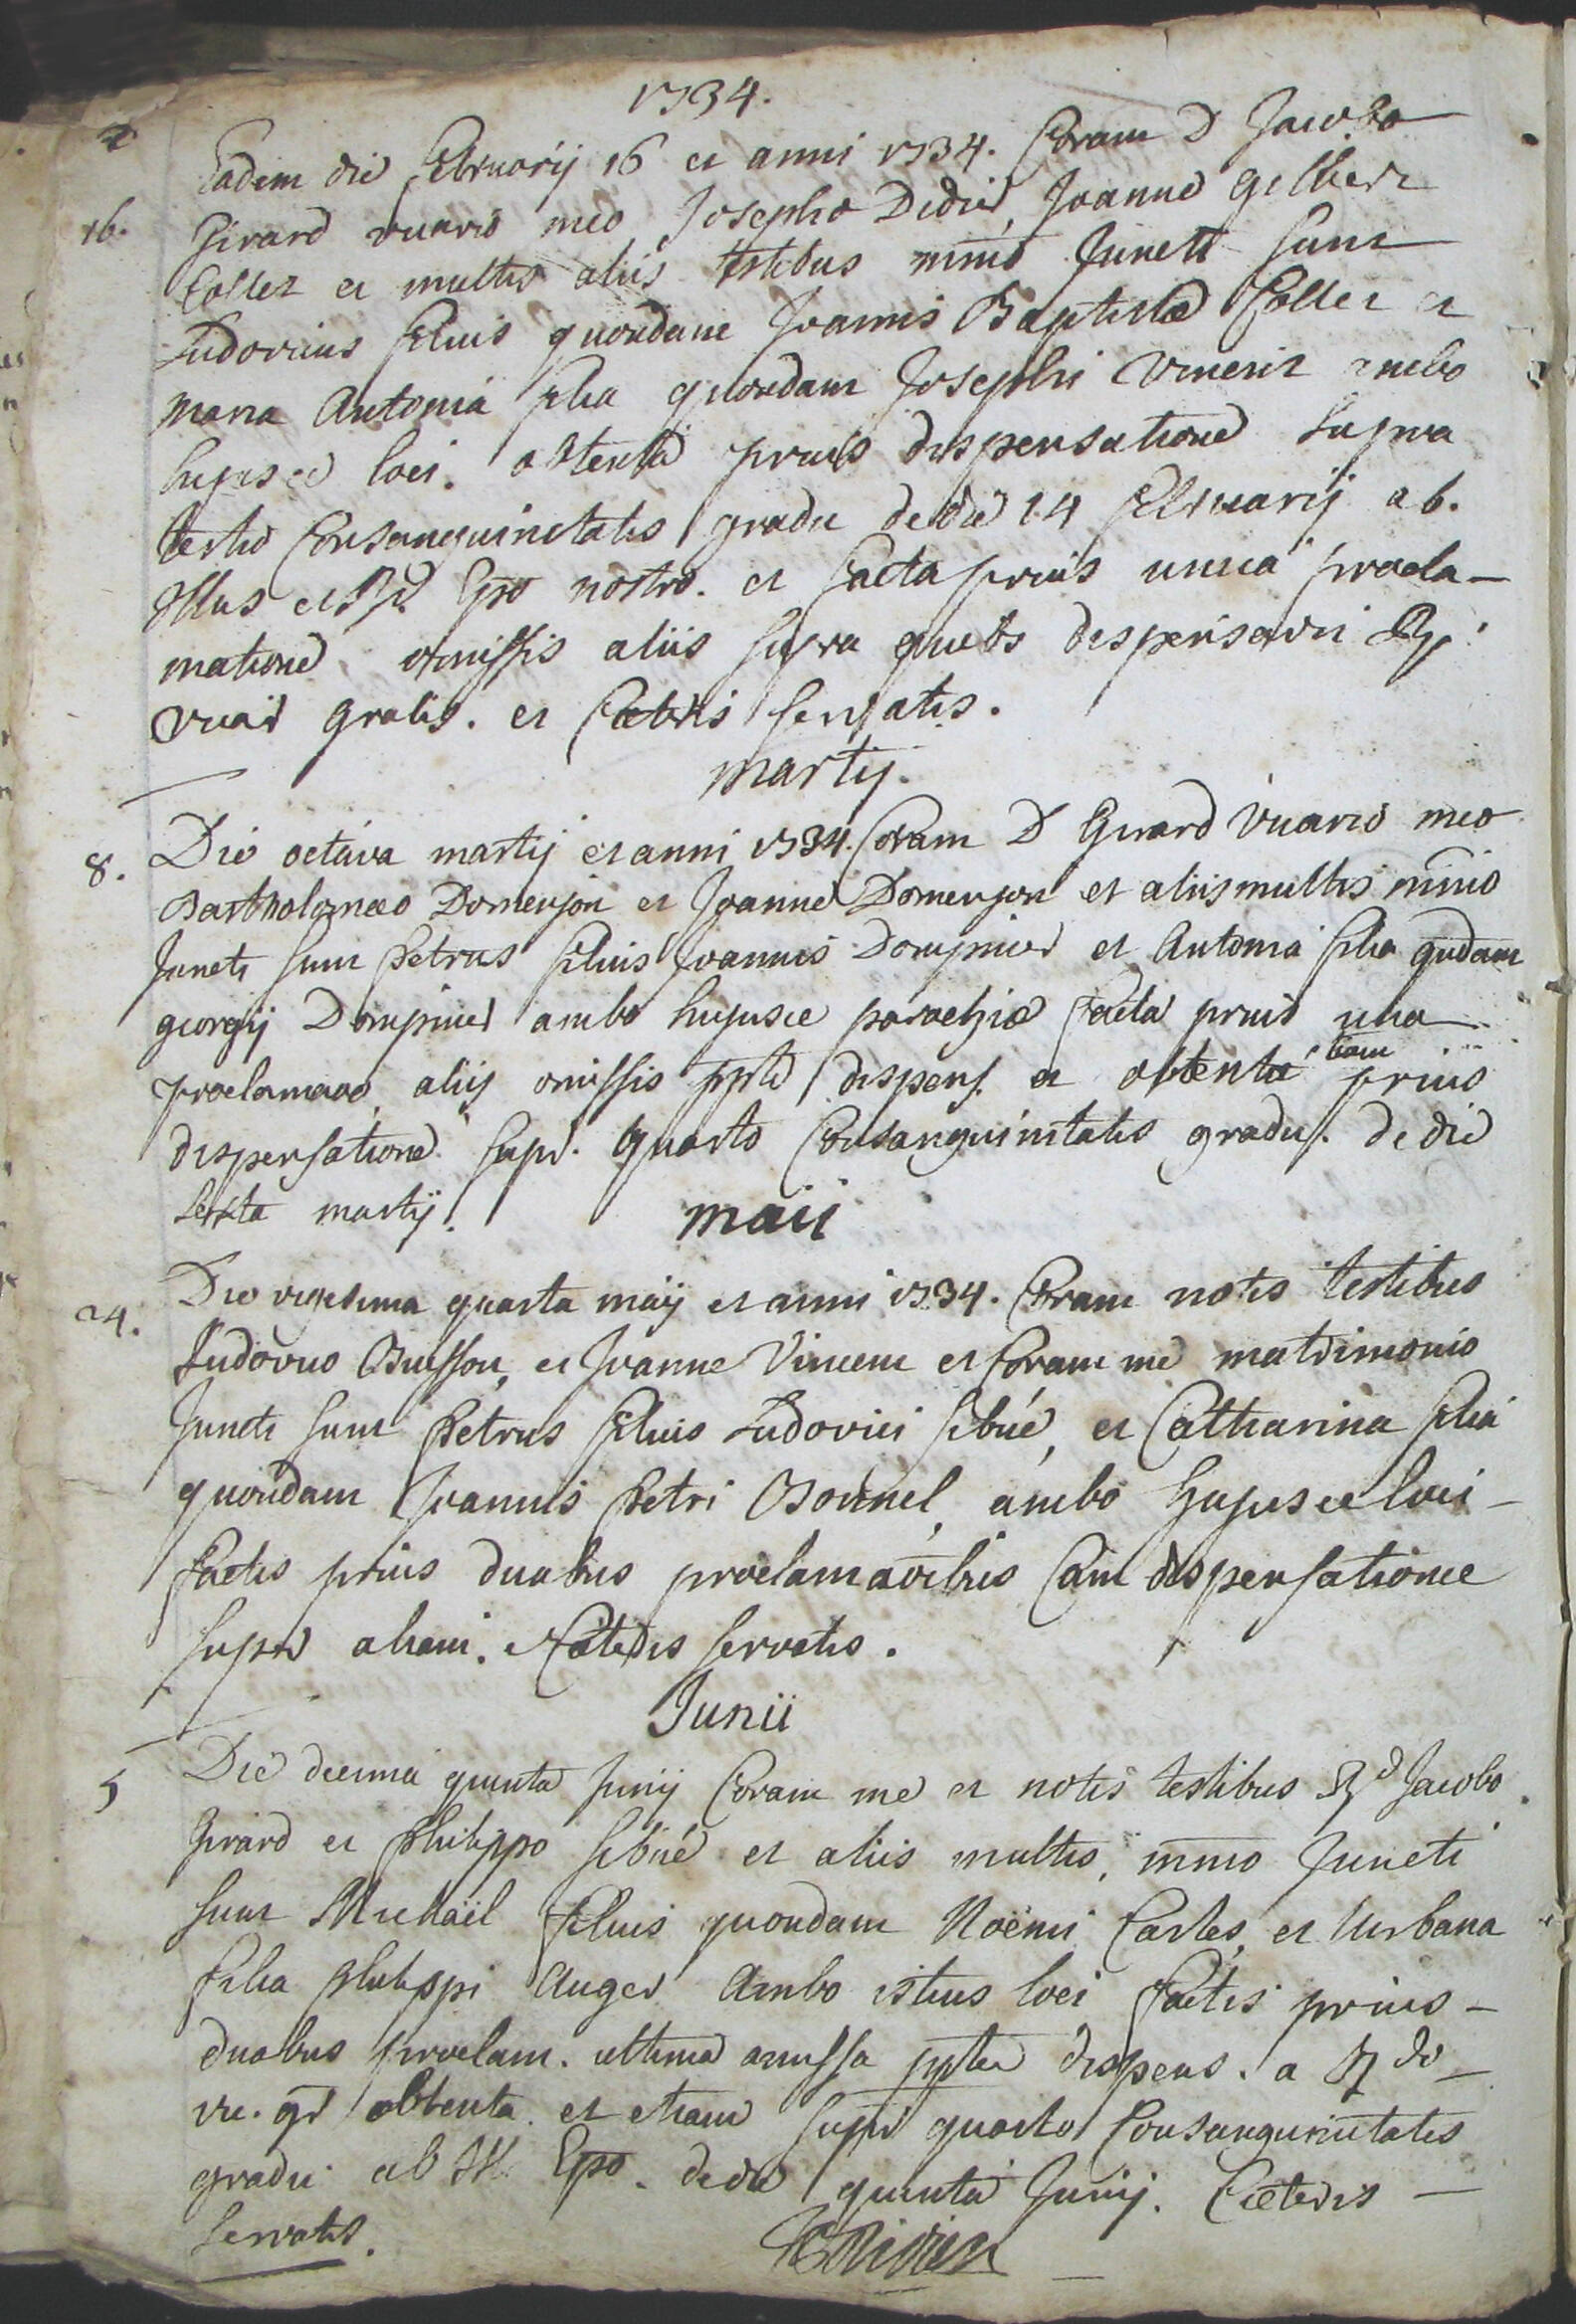 1734.
Eadem die februarij 16 et anni 1734. Coram D Jacobo
16. Girard vicario meo, Josepho Didier, Joanne Gilbert
Collet et multis aliis testibus mnio Juncti sunt
Ludovicus filius quondam Joannis Baptistæ Collet et
Maria Antonia filia quondam Josephi Vincent ambo
hujusce loci. obtentâ prius dispensatione supra
tertio Consanguinitatis gradu de die 14 februarij ab.
Illus et Rd. Epo nostro. et facta prius unica procla-
matione omissis aliis supra quibs dispensavi Rd.
vicar gratis. et Cæteris servatis.
Martij.
8. Die octava martij et anni 1734. Coram D Girard Vicario meo
Bartholomæo Domenjon et Joanne Domenjon et aliis multis mnio
Juncti sunt Petrus filius Joannis Dompnier et Antonia filia qudam
georgij Dompnier ambo hujusce parochiæ facta prius una
proclamaoe, aliis omissis ppter dispens. et obtentâ tam prius
dispensatione supr. quarto Consanguinitatis gradu. de die
sexta martij.
Maii
24. Die vigesima quarta maij et anni 1734. Coram notis testibus
Ludovico Buisson, et Joanne Vincent et Coram me matrimonio
Juncti sunt Petrus filius Ludovici sibué, et Catharina filia
quondam Joannis Petri Bonnel, ambo hujusce loci-
factis prius duabus proclamaoibus Cum dispensatione
super aliam. et Cæteris servatis.
Junii
5 Die decima quinta Junij Coram me et notis testibus Rd Jacobo
Girard et Philippo sibué et aliis multis, mnio Juncti
sunt Michaël filius quondam Noëmi Carles, et Urbana
filia Philippi Auger Ambo istius loci factis prius-
duabus proclam. ultima omissa ppter dispens. a Rdo-
vic. gl obtenta. et etiam supr quarto Consanguinitatis
gradu ab Ill. Epo. de die quinta Junij. Cæteris-
servatis.